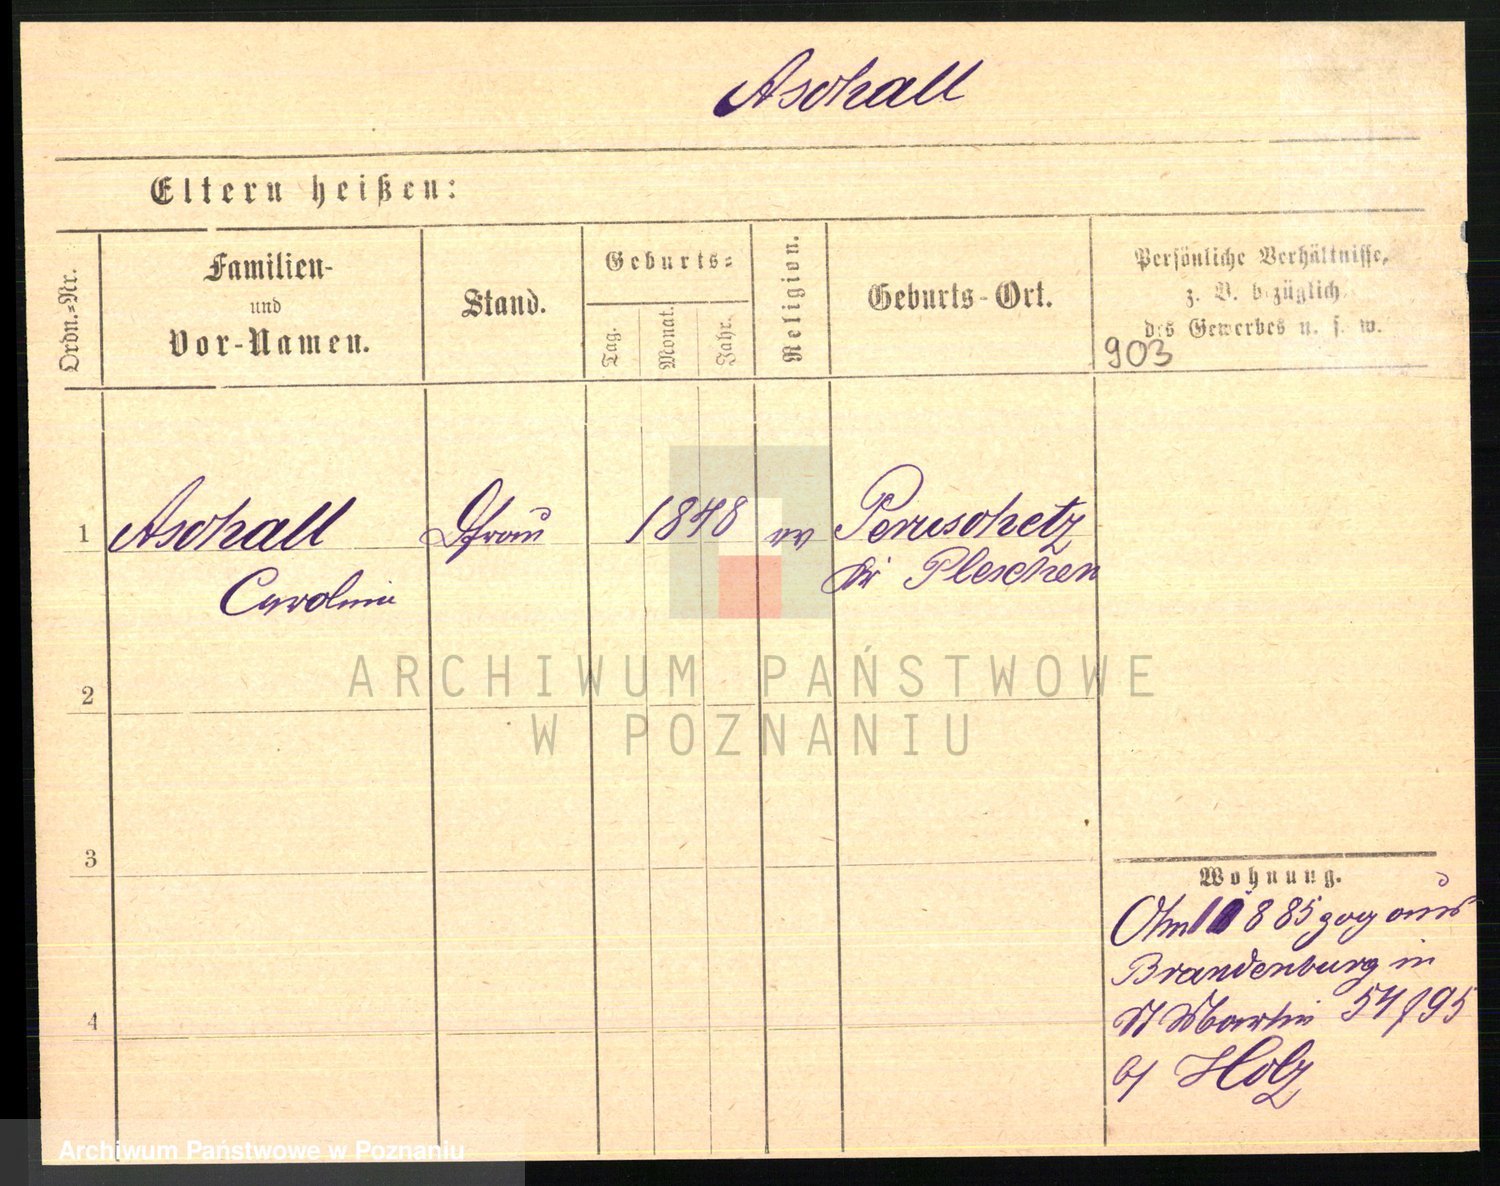 Aschall
Eltern heißen:
Ordn.-Nr.
Familien-
und
Vor-Namen.
Stand.
Geburts-
Tag.
Monat.
Jahr.
Religion.
Geburts-Ort.
Persönliche Verhältnisse,
z. B. bezüglich
des Gewerbes u. s. w.
903
1 Aschall frau 1848 ev Peruschetz
Carolina Kr Pleschen
ARCHIWUM PAŃSTWOWE
2
W POZNANIU
3
Wohnung.
885 zog aus
Brandenburg in
4
St Martin 54/95
b/ Holz
Archiwum Państwowe w Poznaniu